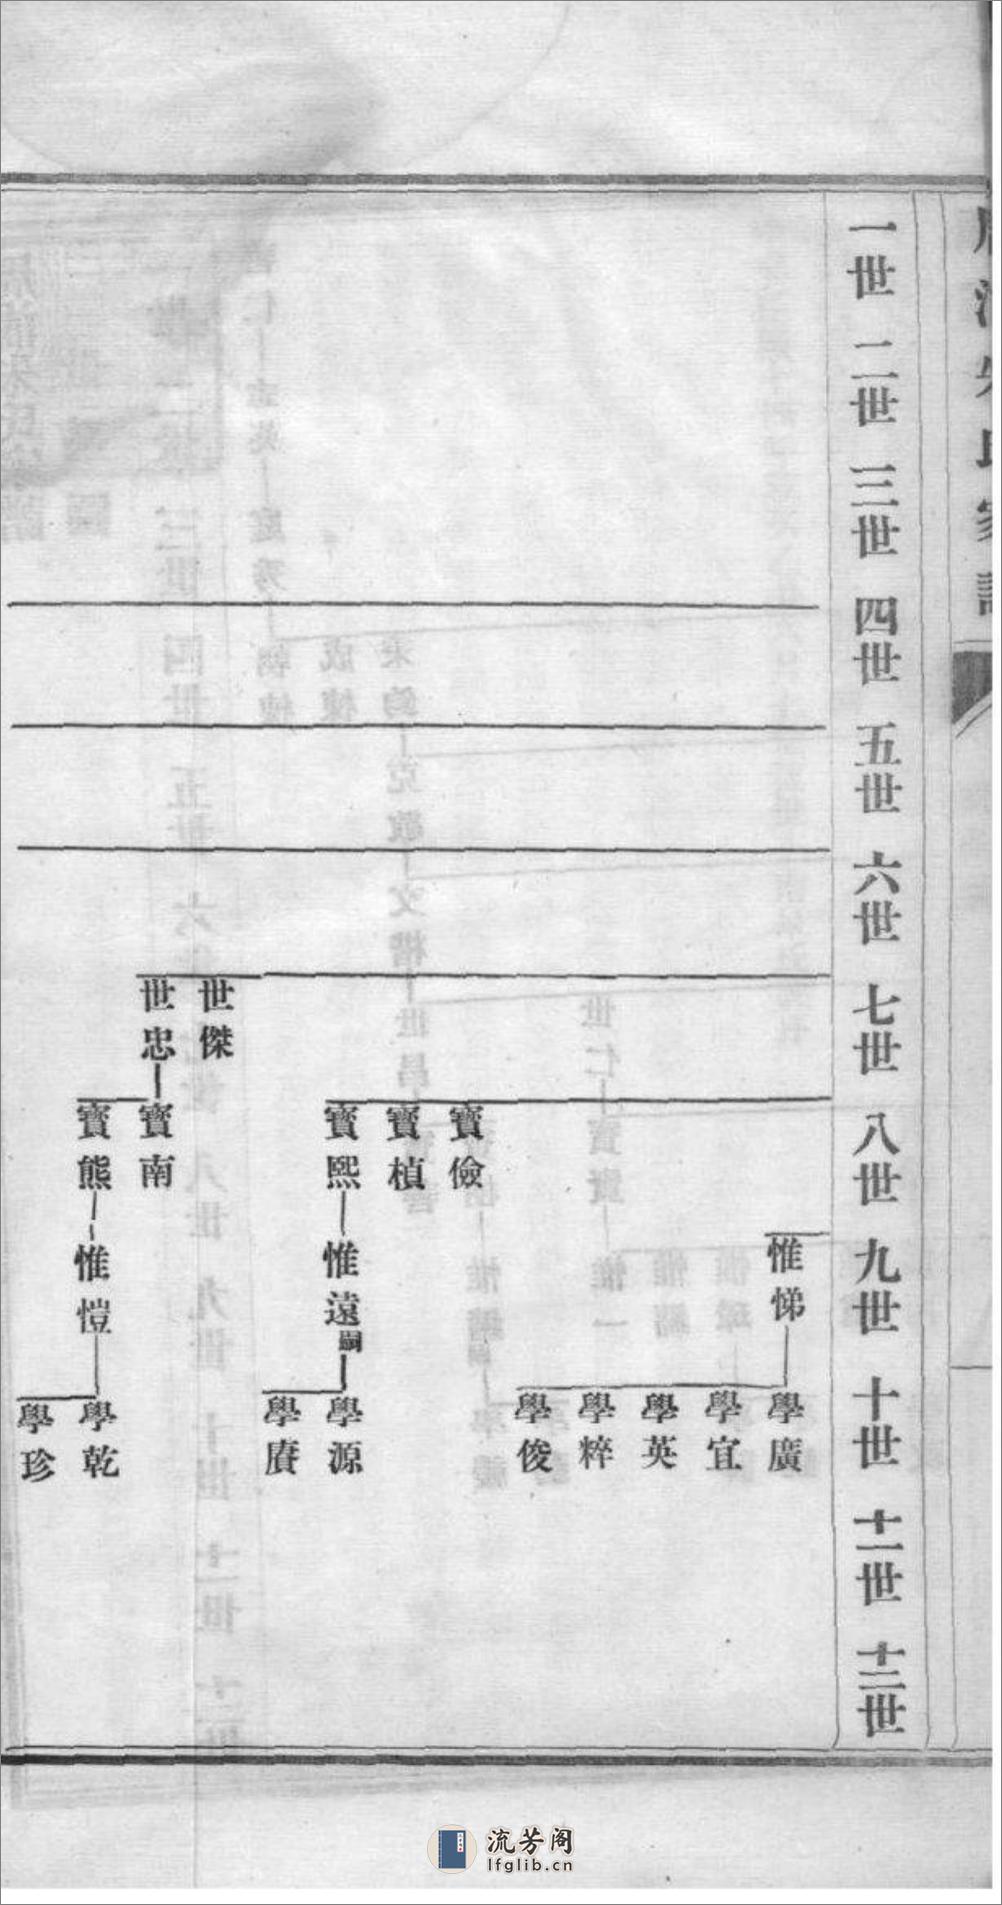 一世 二世 三世 四世 五世 六世 七世 八世 九世 十世 十一世 十二世
惟悌
學廣
學宜
學英
學粹
學俊
寶儉
寶楨
寶熙 惟遠嗣 學源
學賡
世傑
世忠 寶南
寶熊 惟愷 學乾
學珍
流芳阁
lfglib.cn